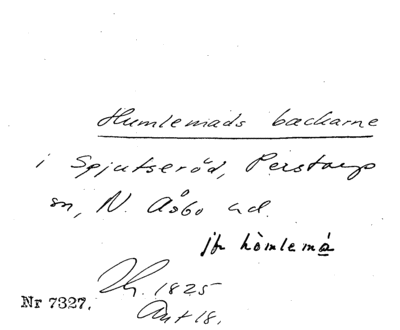 Humlemads backarne
i Spjutseröd, Perstorp
sn, N. Åsbo hd.
jfr hòmlemá
1825
Nr 7327.
Ant 18.